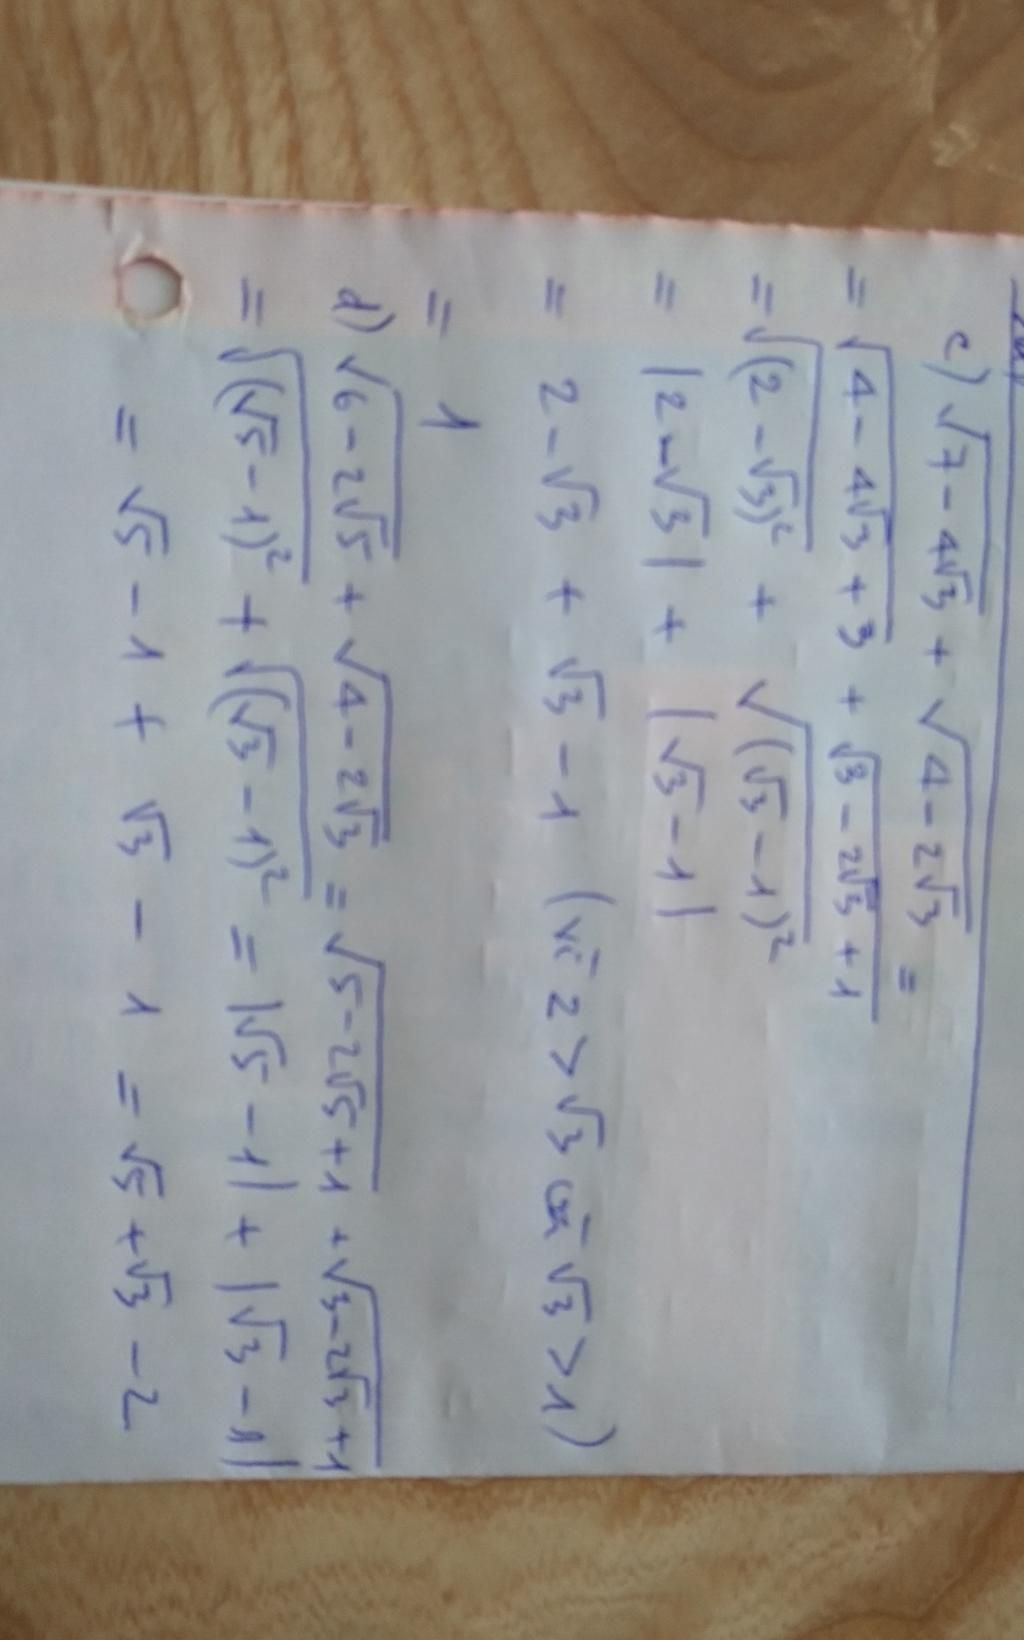 c) √(7 - 4√3) + √(4 - 2√3) =
= √(4 - 4√3 + 3) + √(3 - 2√3 + 1)
= √((2 - √3)²) + √((√3 - 1)²)
= |2 - √3| + |√3 - 1|
= 2 - √3 + √3 - 1 (vì 2 > √3 và √3 > 1)
= 1
d) √(6 - 2√5) + √(4 - 2√3) = √(5 - 2√5 + 1) + √(3 - 2√3 + 1)
= √((√5 - 1)²) + √((√3 - 1)²) = |√5 - 1| + |√3 - 1|
= √5 - 1 + √3 - 1 = √5 + √3 - 2